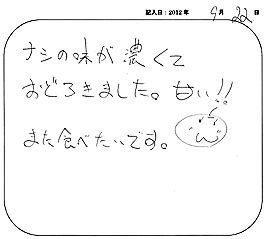 記入日：2012年 9月 22日
ナシの味が濃くて
おどろきました。甘い!!
また食べたいです。